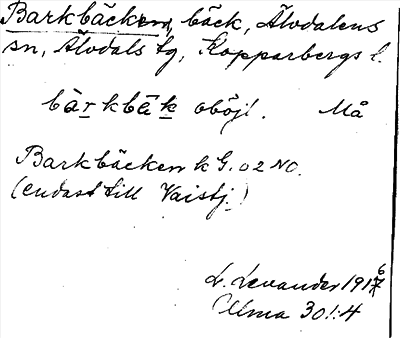 Barkbäcken, bäck, Älvdalens
sn, Älvdals tg, Kopparbergs l.
bàrkbäk oböjl. Må
Barkbäcken k G. 02 NO.
(endast till Vaistj.)
L. Levander 1916
Ulma 301:4